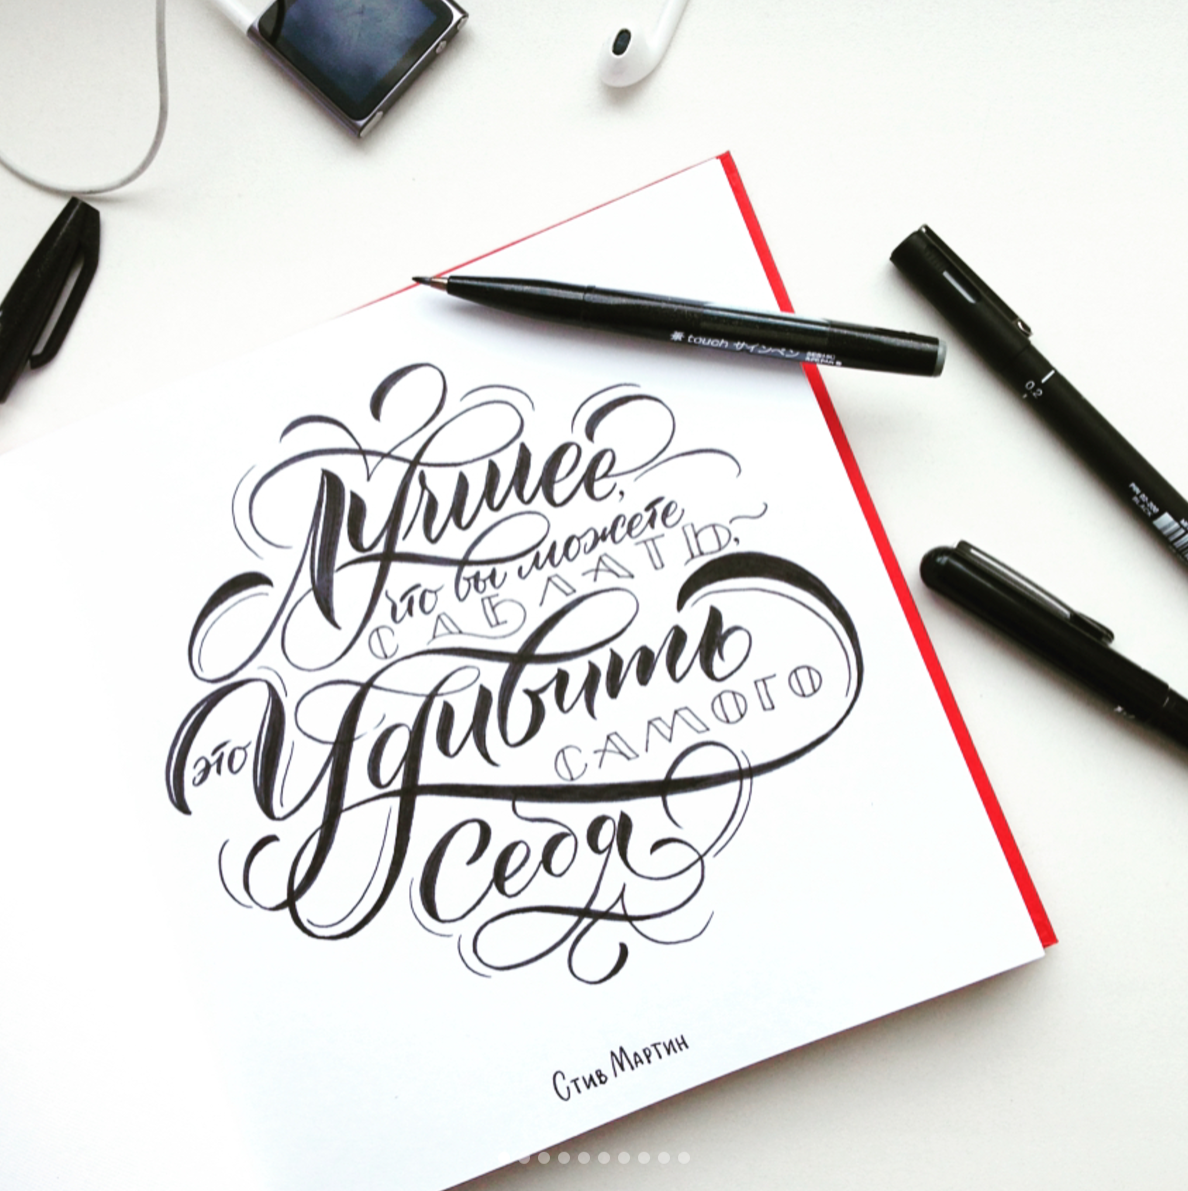 Лучшее,
что вы можете
СДЕЛАТЬ,
это Удивить
САМОГО
себя
Стив Мартин
touch サインペン
0.2